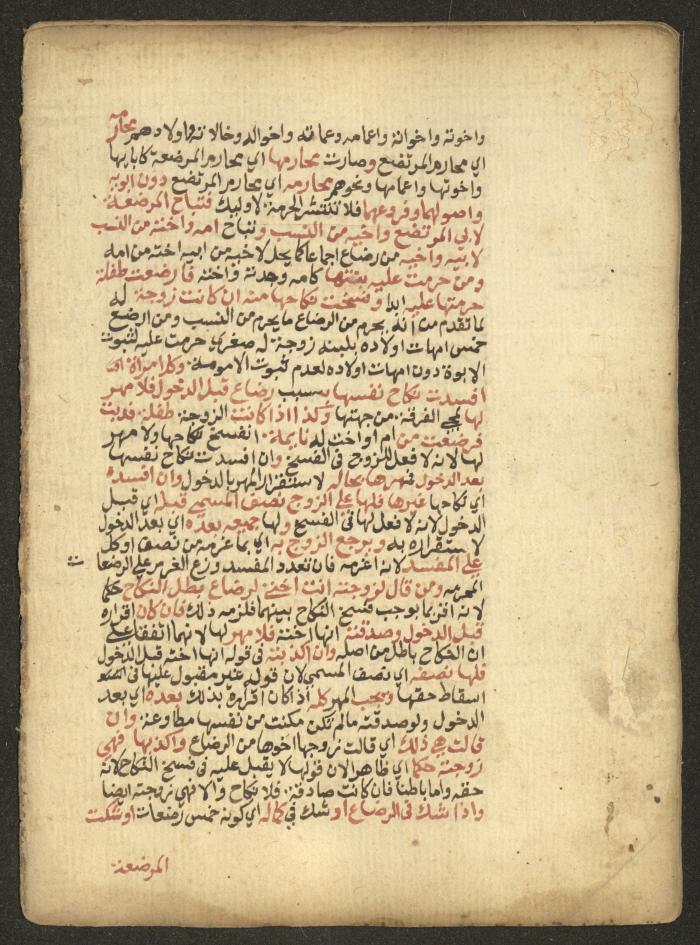 واخوته واخواته واعمامه وعماته واخواله وخالاته واولادهم محارمه
اي محارم المرتضع وصارت محارمها اي محارم المرضعة كابايها
واخوتها واعمامها ونحوهم محارمه اي محارم المرتضع دون ابويه
واصولهما وفروعهما فلا تنتشر الحرمة لاوليك فتباح المرضعة
لابي المرتضع واخيه من النسب وتباح امه واخته من النسب
لابيه واخيه من رضاع اجماعا كما يحل لاخيه من ابيه اخته من امه
ومن حرمت عليه بنتها كامه وجدته واخته فارضعت طفلة
حرمتها عليه ابدا وفسخت نكاحها منه ان كانت زوجة له
لما تقدم من انه يحرم من الرضاع ما يحرم من النسب ومن ارضع
خمس امهات اولاده بلبنه زوجة له صغرى حرمت عليه لثبوت
الابوة دون امهات اولاده لعدم ثبوت الامومة وكل امراة
افسدت نكاح نفسها بسبب رضاع قبل الدخول فلا مهر
لها لمجي الفرقة من جهتها وكذا اذا كانت الزوجة طفلة فدبت
فرضعت من ام او اخت له نايمة انفسخ نكاحها ولا مهر
لها لانه لا فعل للزوج في الفسخ وان افسدت نكاح نفسها
بعد الدخول فمهرها بحاله لاستقرار المهر بالدخول وان افسده
اي نكاحها غيرها فلها على الزوج نصف المسمى قبله اي قبل
الدخول لانه لا فعل لها في الفسخ ولها جميعه بعده اي بعد الدخول
لاستقراره به ويرجع الزوج به اي بما غرمه من نصف او كل
على المفسد لانه اغرمه فان تعدد المفسد وزع الغرم على الرضعات
المحرمه ومن قال لزوجته انت اختي لرضاع بطل النكاح حكما
لانه اقر بما يوجب فسخ النكاح بينهما فلزمه ذلك فان كان اقراره
قبل الدخول وصدقته انها اخته فلا مهر لها لانهما اتفقا على
ان النكاح باطل من اصله وان اكذبته في قوله انها اخته قبل الدخول
فلها نصفه اي نصف المسمى لان قوله غير مقبول عليها في
اسقاط حقها ويجب المهر كله اذا كان اقراره بذلك بعده اي بعد
الدخول ولو صدقته ما لم تكن مكنت من نفسها مطاوعة وان
قالت هي ذلك اي قالت زوجها اخوها من الرضاع واكذبها فهي
زوجته حكما اي ظاهرا لان قولها لا يقبل عليه في فسخ النكاح لانه
حقه واما باطنا فان كانت صادقة فلا نكاح والا فهي زوجته ايضا
واذا شك في الرضاع او شك في كماله اي كونه خمس رضعات او شكت
المرضعة